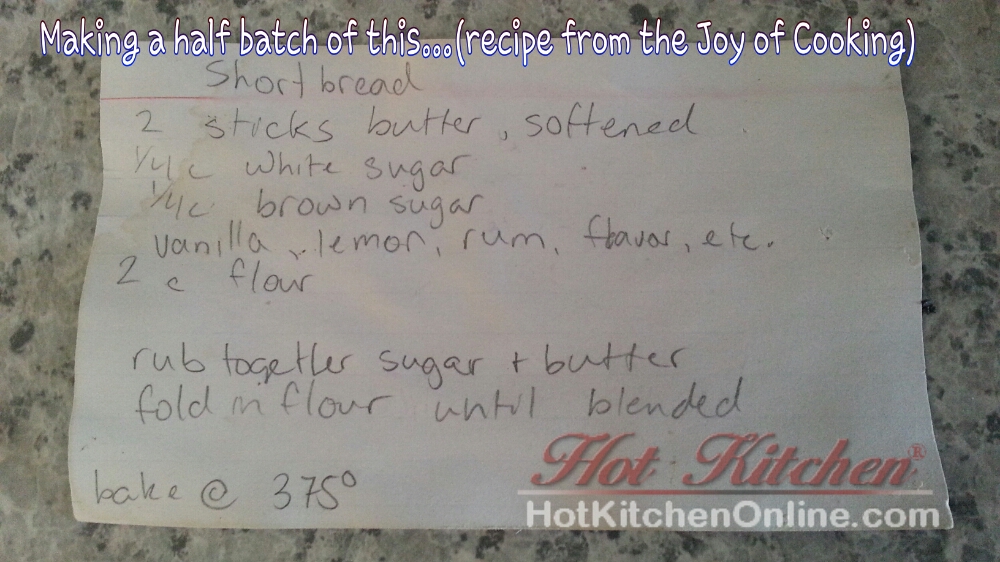 Making a half batch of this...(recipe from the Joy of Cooking)
Short bread
2 sticks butter, softened
1/4 c white sugar
1/4 c brown sugar
vanilla, lemon, rum, flavor, etc.
2 c flour
rub together sugar + butter
fold in flour until blended
bake @ 375°
Hot Kitchen®
HotKitchenOnline.com